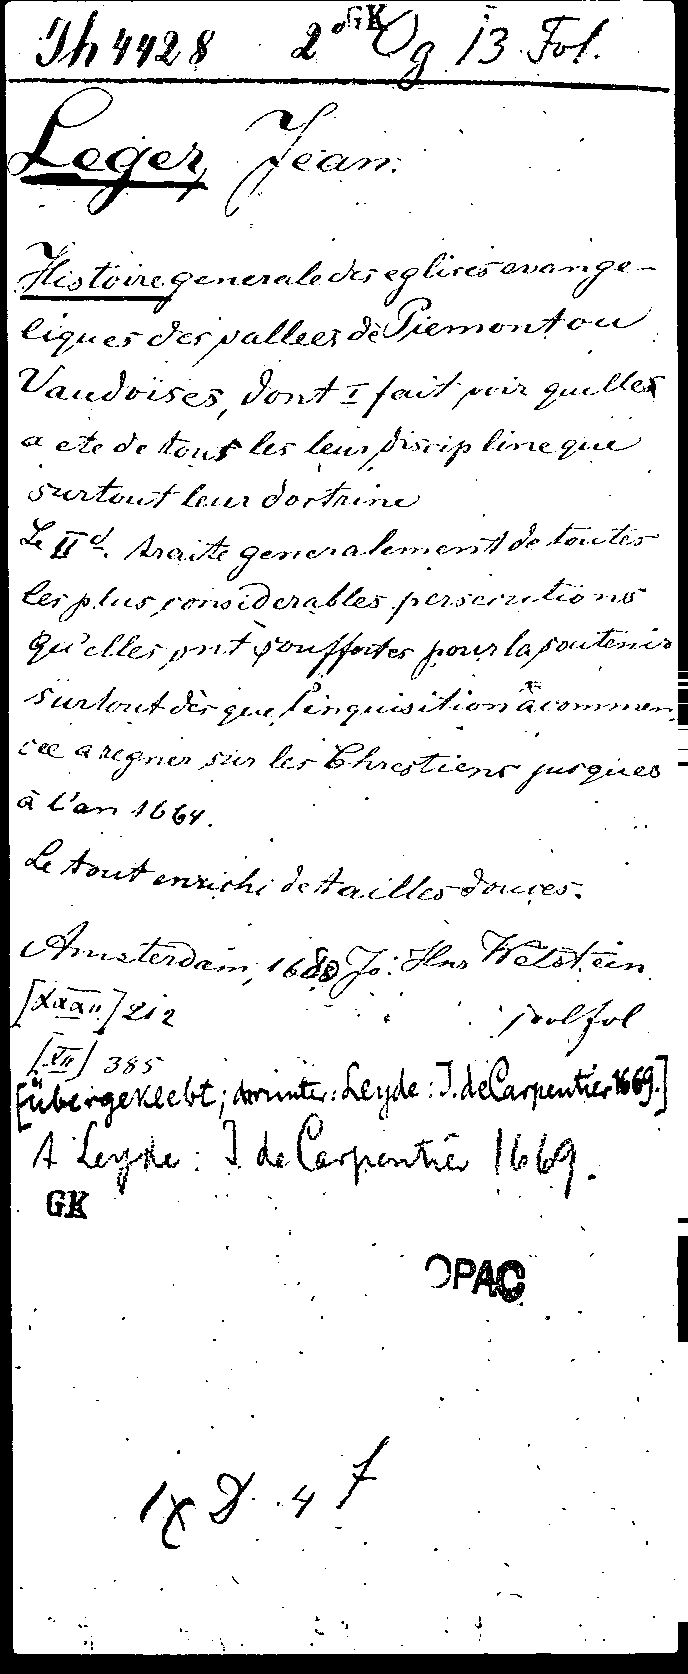 Th 4428 2° Og 13 Fol.
GK
Leger, Jean.
Histoire generale des eglises evange-
liques des vallees de Piemont ou
Vaudoises, dont I fait voir quelles
a ete de tous les leur discipline que
surtout leur doctrine
Le IId. traite generalement de toutes
les plus considerables persecutions
qu'elles ont souffertes pour la soutenir
surtout dès que l'inquisition à commen-
cee a regner sur les Chrestiens jusques
à l'an 1664.
Le tout enrichi de tailles douces.
Amsterdam, 1680 Jo: Hnr Wetstein
[XXXII] 212
1 vol fol
[XII] 385
[überklebt; darunter: Leyde: J. de Carpentier 1669.]
A Leyde: J de Carpentier 1669.
GK
OPAC